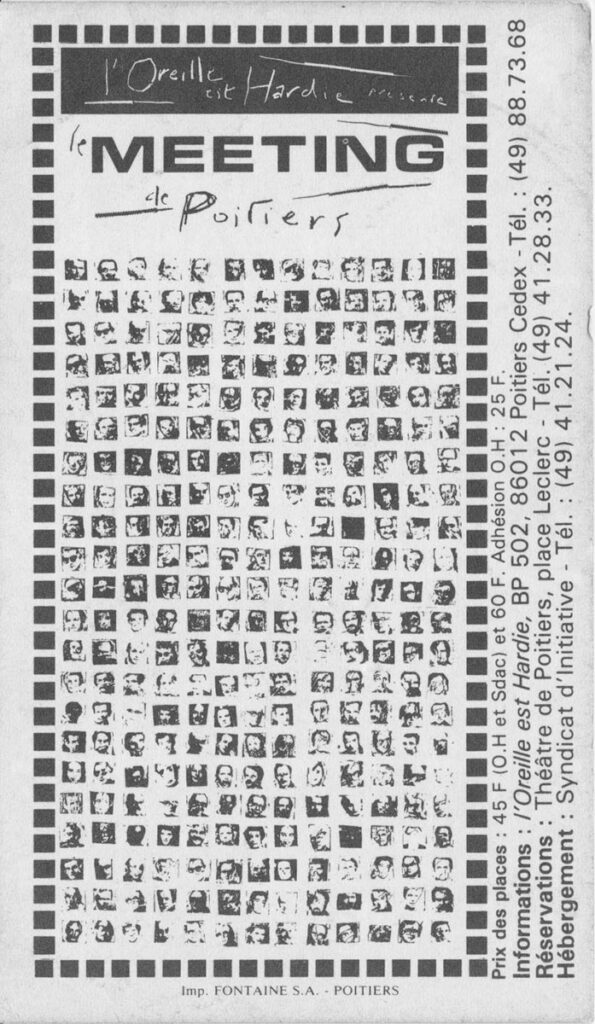 l'Oreille est Hardie présente
le MEETING
de Poitiers
Prix des places : 45 F (O.H et Sdac) et 60 F. Adhésion O.H : 25 F.
Informations : l'Oreille est Hardie, BP 502, 86012 Poitiers Cedex - Tél. : (49) 88.73.68
Réservations : Théâtre de Poitiers, place Leclerc - Tél. (49) 41.28.33.
Hébergement : Syndicat d'Initiative - Tél. : (49) 41.21.24.
Imp. FONTAINE S.A. - POITIERS